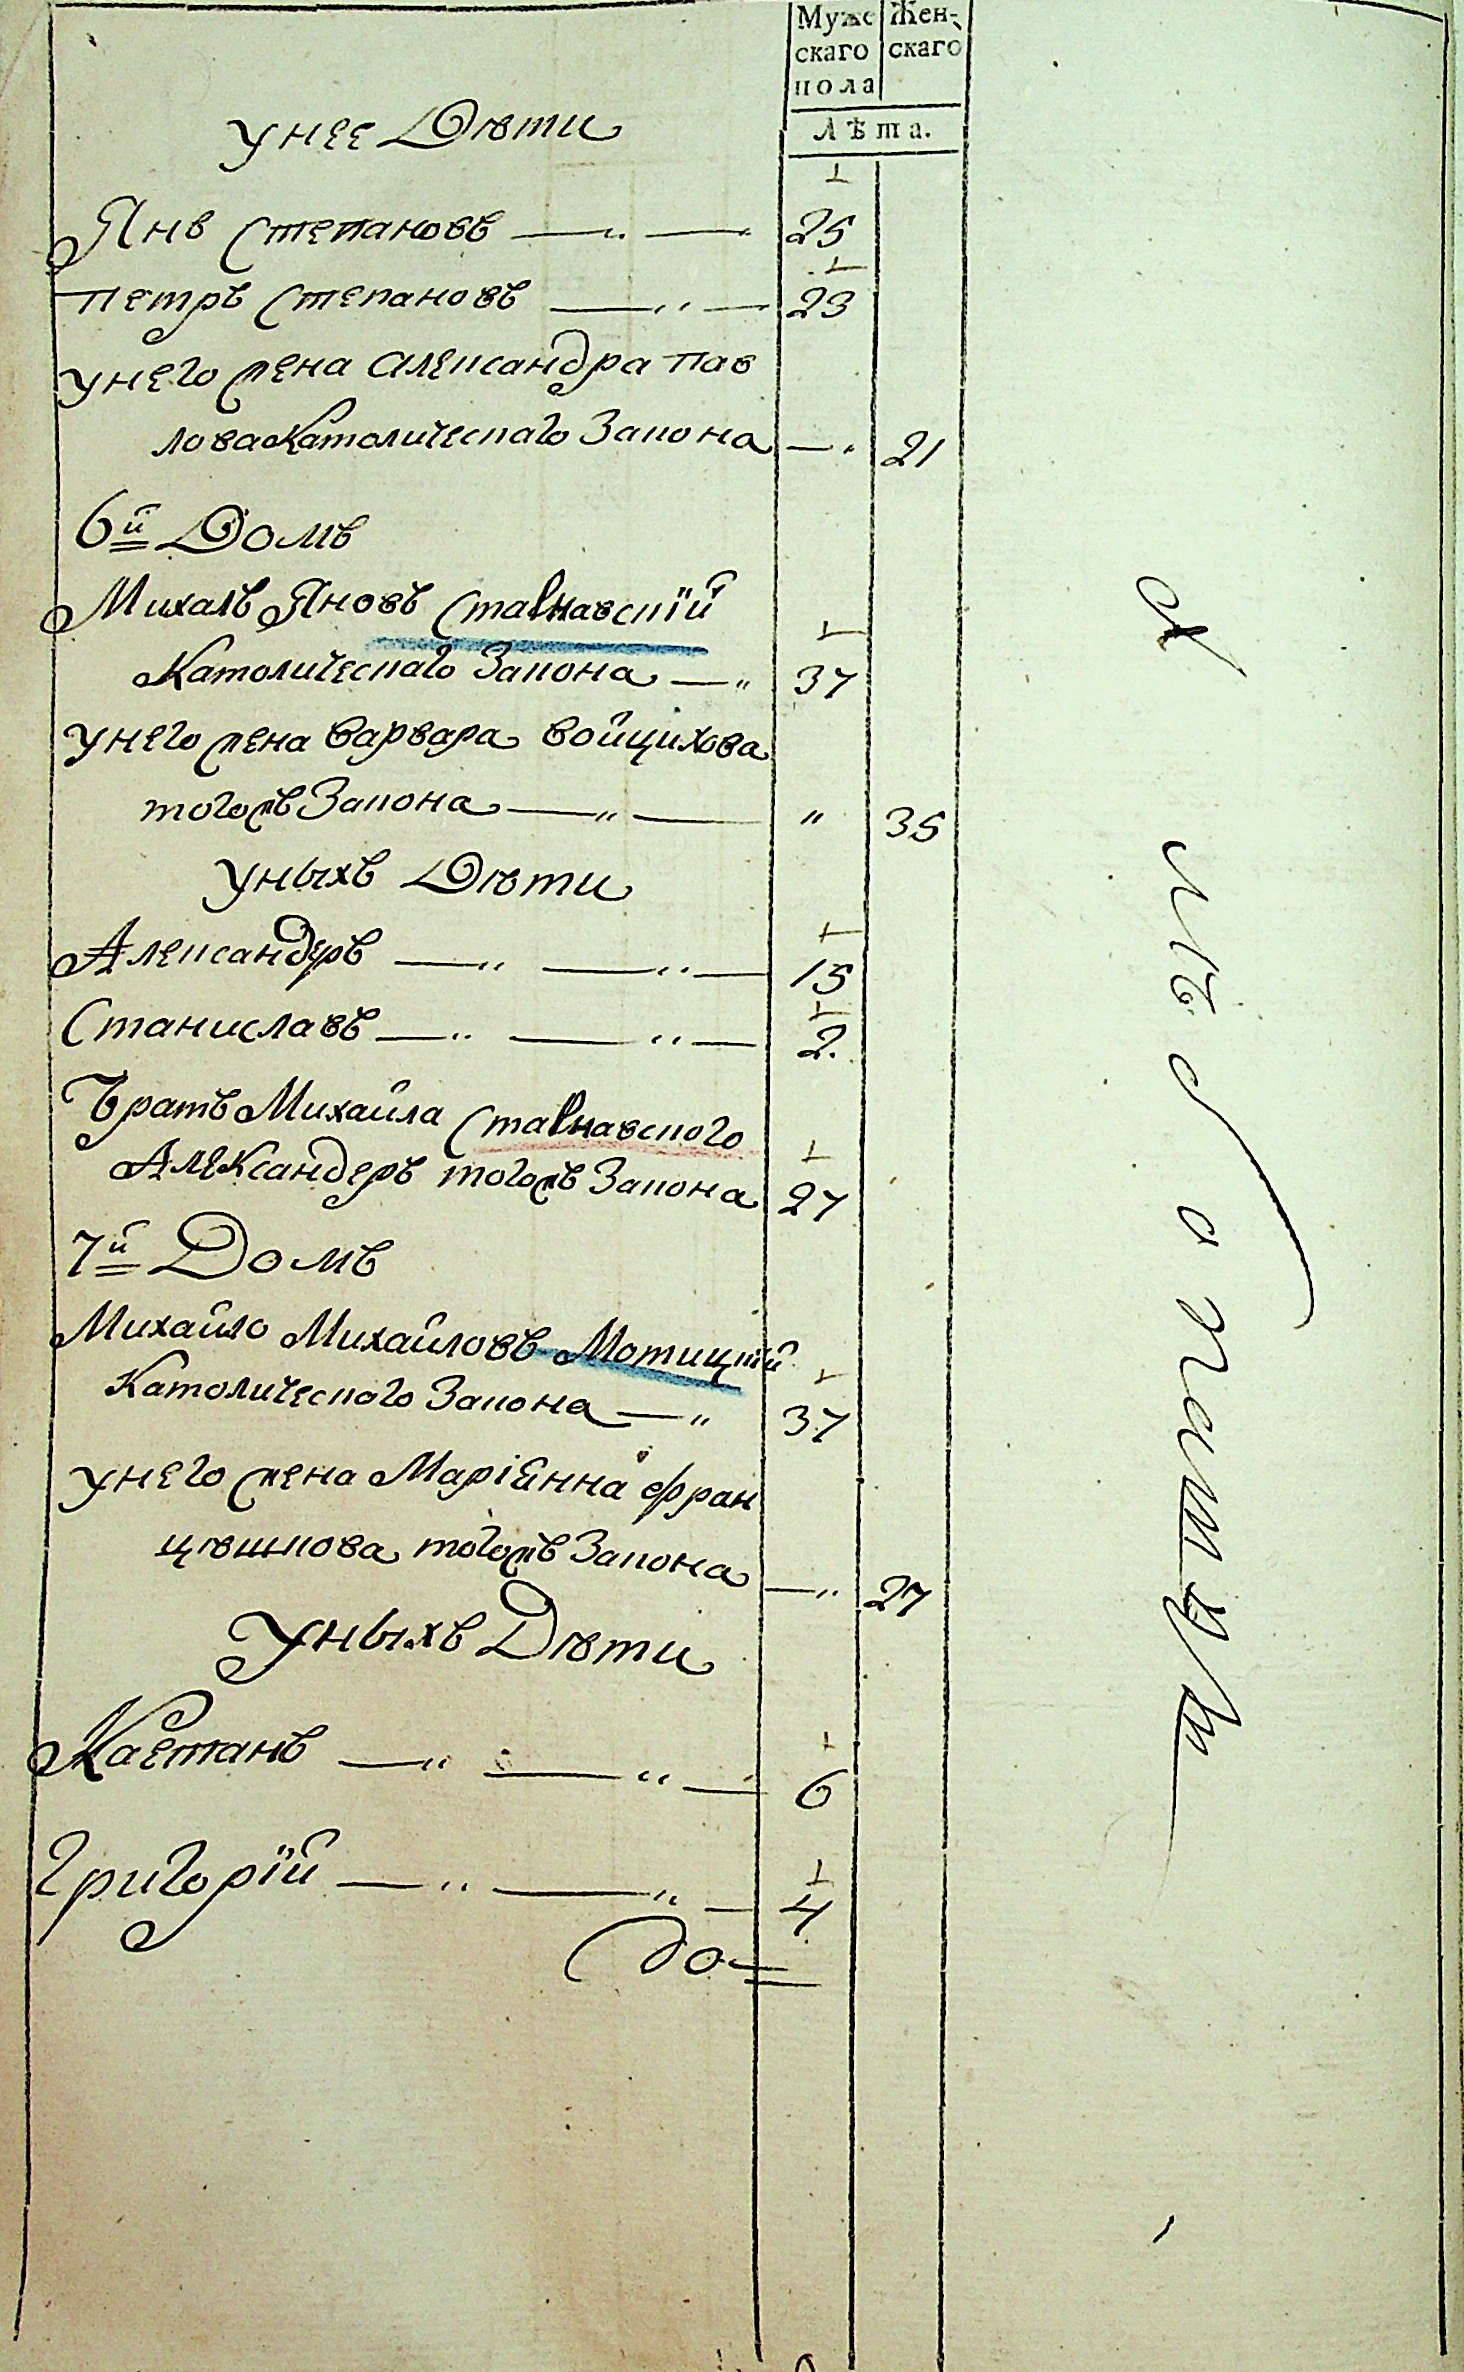 Муже Жен-
скаго скаго
пола
Лѣта.
унее Дѣти
Янъ Степановъ 25
Петръ Степановъ 23
унего жена Александра Пав
лова Католическаго Закона 21
6й Домъ
Михалъ Яновъ
Католическаго Закона 37
унего жена Варвара Войцихова
тогожъ Закона 35
уныхъ Дѣти
Александеръ 15
Станиславъ 2.
Братъ Михайла
Александеръ тогожъ Закона 27
7й Домъ
Михайло Михайловъ Мотицкій
Католическаго Закона 37
унего жена Маріянна Фран
цѣшкова тогожъ Закона 27
уныхъ Дѣти
Каетанъ 6
Григорій 4